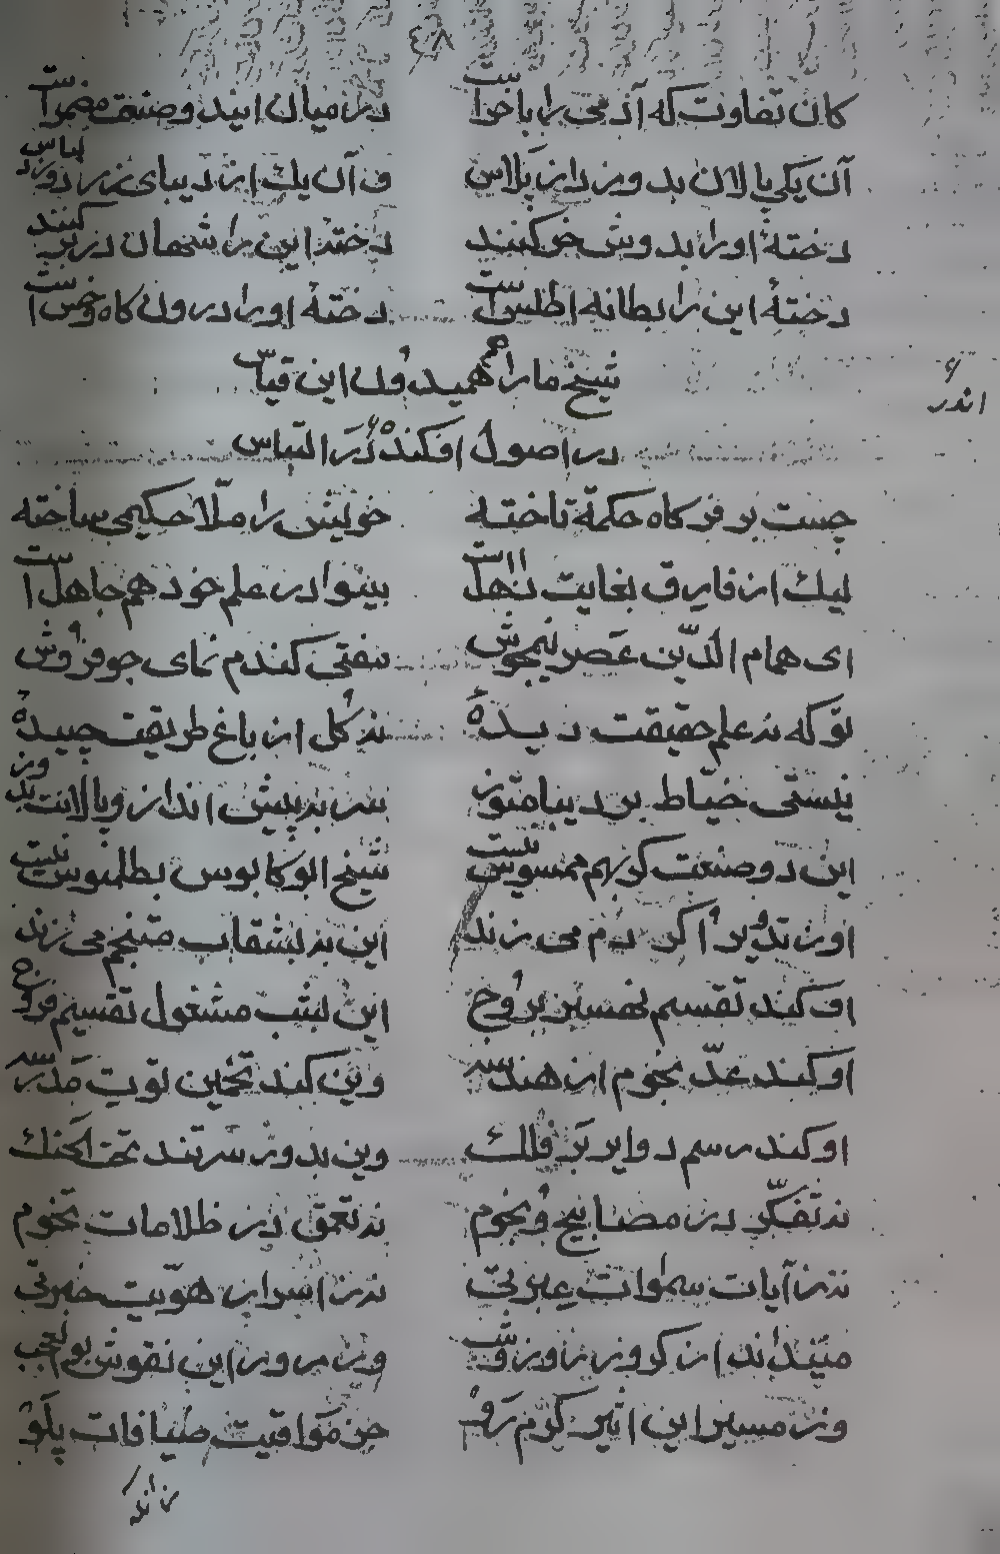 ۴۸
کان تفاوت که آدمی را با خراست در میان ایند و صنعت مضمراست
آن یکی پالان بدوزد از پلاس و آن یک از دیبای زر دوزد لباس
دختهٔ اورا بدوش خر کنند دختهٔ این را شهان در بر کنند
دختهٔ این را بطانه اطلس است دختهٔ اورا درون کاه و خس است
شیخ مارا همیدون این قیاس
اندر
در اصول افکند در التباس
جست بر فرکاه حکمة تاخته خویش را ملا حکیمی ساخته
لیک از فارق بغایت ذاهلست بینوا در علم خود هم جاهل است
ای همام الدین عصر نیمجوش مفتی کندم نمای جو فروش
تو که نه علم حقیقت دیدهٔ نه کل از باغ طریقت چیدهٔ
نیستی خیاط بر دیبا متوز سر به پیش انداز و پالانت بدوز
این دو صنعت کر بهم ممسوس نیست شیخ ابو کابوس بطلمیوس نیست
او زتدویر اکر دم می زند این به بشقاب منجم می زند
او کند تقسیم نفسین بروج این لبشب مشغول تقسیم فروج
او کند عد نجوم از هندسه وین کند تخمین توت مدرسه
او کند رسم دوایر بر فلک وین بدور سر تند تحت الحنک
نه تفکر در مصابیح و نجوم نه تعمق در ظلامات تخوم
نه ز آیات سموات عبرتی نه ز اسرار هویت خبرتی
می نداند از کروز روز و شب وز مرور این نقوش بو العجب
وز مسیر این اثیر کرم رو جز مواقیت ضیافات پلو
نداند